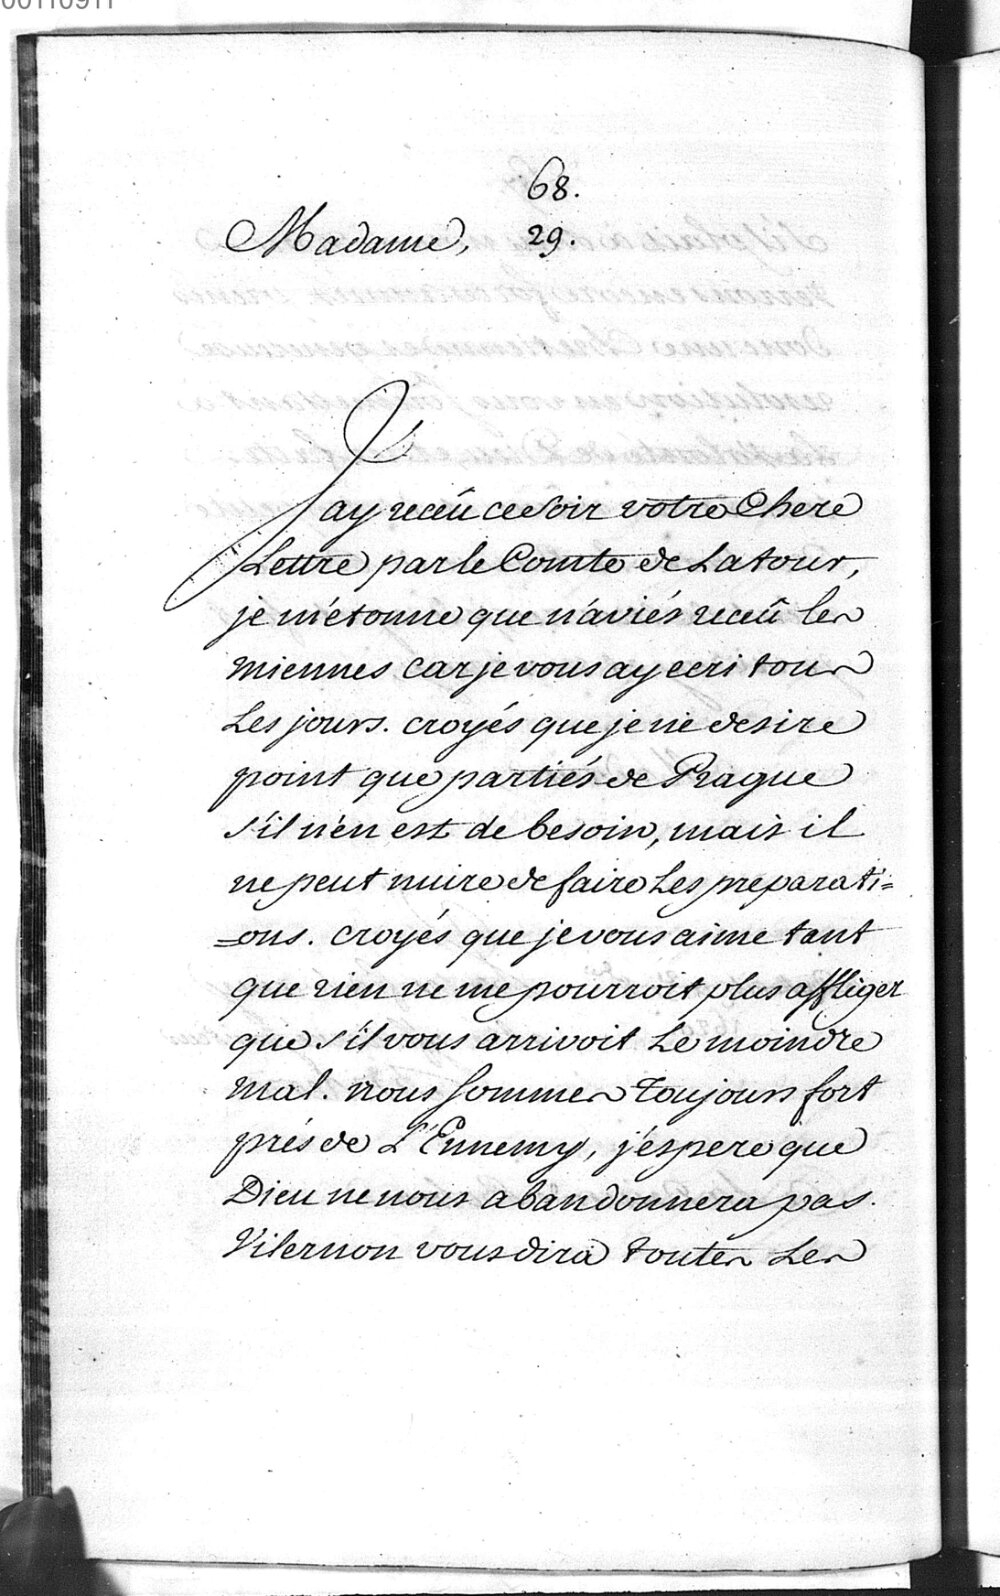 00110911
68.
Madame, 29.
Jay receû ce soir votre Chere
Lettre par le Comte de Latour,
je m'étonne que n'aviés receû les
miennes car je vous ay ecri tous
Les jours. croyés que je ne desire
point que partiés de Prague
s'il n'en est de besoin, mais il
ne peut nuire de faire Les preparati=
=ons. croyés que je vous aime tant
que rien ne me pourroit plus affliger
que s'il vous arrivoit Le moindre
mal. nous sommes toujours fort
prés de L'Ennemy, j'espere que
Dieu ne nous abandonnera pas.
Vilernon vous dira toutes Les